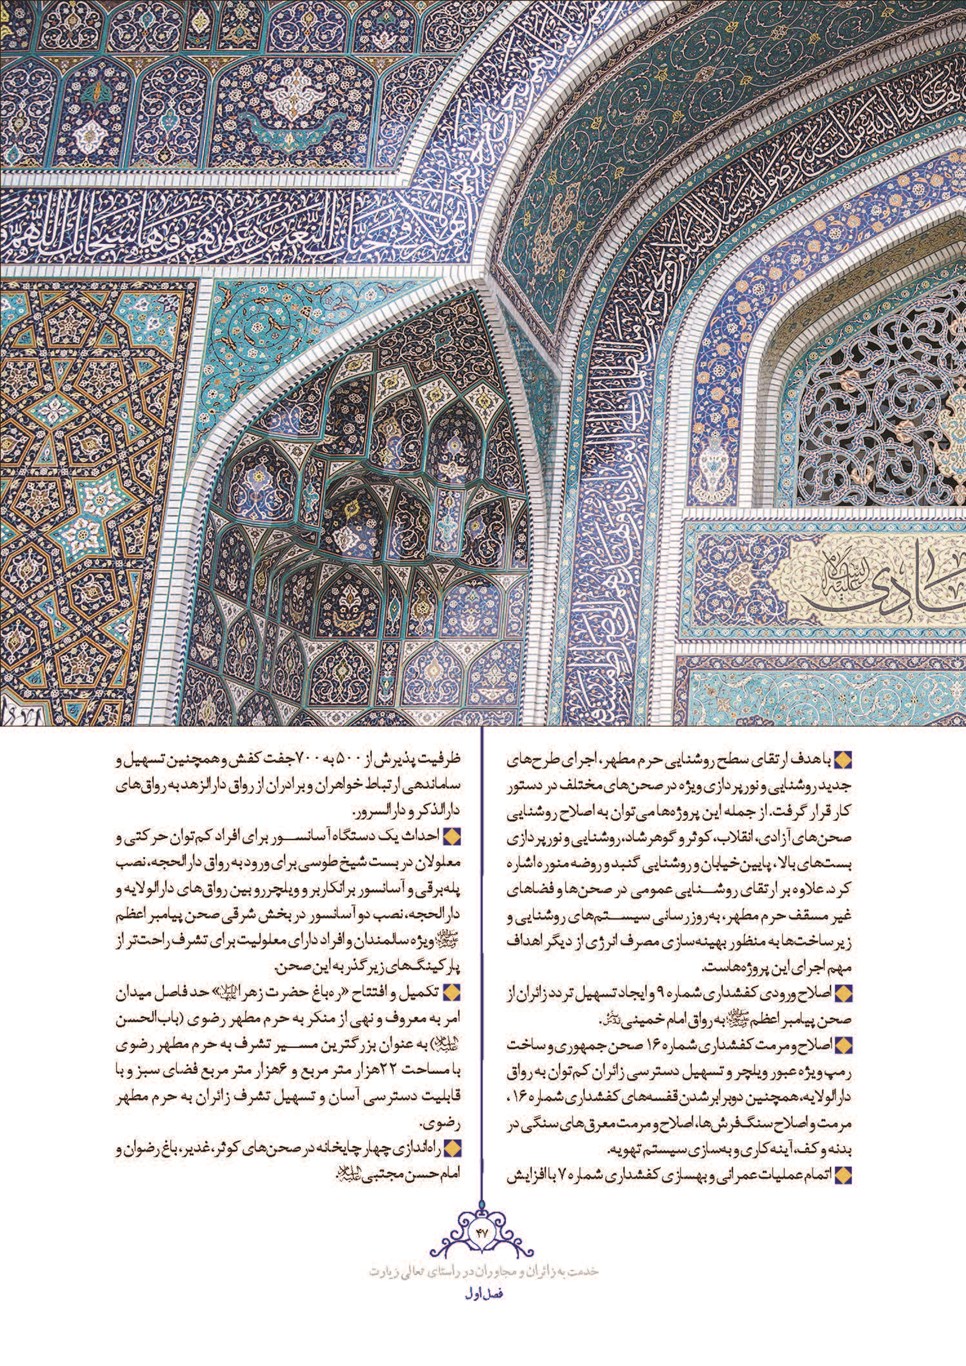 با هدف ارتقای سطح روشنایی حرم مطهر، اجرای طرح‌های
جدید روشنایی و نورپردازی ویژه در صحن‌های مختلف در دستور
کار قرار گرفت. از جمله این پروژه‌ها می‌توان به اصلاح روشنایی
صحن‌های آزادی، انقلاب، کوثر و گوهرشاد، روشنایی و نورپردازی
بست‌های بالا، پایین‌خیابان و روشنایی گنبد و روضه منوره اشاره
کرد. علاوه بر ارتقای روشنایی عمومی در صحن‌ها و فضاهای
غیر مسقف حرم مطهر، به‌روزرسانی سیستم‌های روشنایی و
زیرساخت‌ها به منظور بهینه‌سازی مصرف انرژی از دیگر اهداف
مهم اجرای این پروژه‌هاست.
اصلاح ورودی کفشداری شماره ۹ و ایجاد تسهیل تردد زائران از
صحن پیامبر اعظم ﷺ به رواق امام خمینی.
اصلاح و مرمت کفشداری شماره ۱۶ صحن جمهوری و ساخت
رمپ ویژه عبور ویلچر و تسهیل دسترسی زائران کم‌توان به رواق
دارالولایه، همچنین دوبرابر شدن قفسه‌های کفشداری شماره ۱۶،
مرمت و اصلاح سنگ‌فرش‌ها، اصلاح و مرمت معرق‌های سنگی در
بدنه و کف، آینه‌کاری و به‌سازی سیستم تهویه.
اتمام عملیات عمرانی و بهسازی کفشداری شماره ۷ با افزایش
ظرفیت پذیرش از ۵۰۰ به ۷۰۰ جفت کفش و همچنین تسهیل و
ساماندهی ارتباط خواهران و برادران از رواق دارالزهد به رواق‌های
دارالذکر و دارالسرور.
احداث یک دستگاه آسانسور برای افراد کم‌توان حرکتی و
معلولان در بست شیخ طوسی برای ورود به رواق دارالحجه، نصب
پله‌برقی و آسانسور برانکاربر و ویلچررو بین رواق‌های دارالولایه و
دارالحجه، نصب دو آسانسور در بخش شرقی صحن پیامبر اعظم
ﷺ ویژه سالمندان و افراد دارای معلولیت برای تشرف راحت‌تر از
پارکینگ‌های زیرگذر به این صحن.
تکمیل و افتتاح «ره‌باغ حضرت زهرا» حد فاصل میدان
امر به معروف و نهی از منکر به حرم مطهر رضوی (باب‌الحسن
) به عنوان بزرگترین مسیر تشرف به حرم مطهر رضوی
با مساحت ۲۲هزار متر مربع و ۶هزار متر مربع فضای سبز و با
قابلیت دسترسی آسان و تسهیل تشرف زائران به حرم مطهر
رضوی.
راه‌اندازی چهار چایخانه در صحن‌های کوثر، غدیر، باغ رضوان و
امام حسن مجتبی.
۴۷
خدمت به زائران و مجاوران در راستای تعالی زیارت
فصل اول